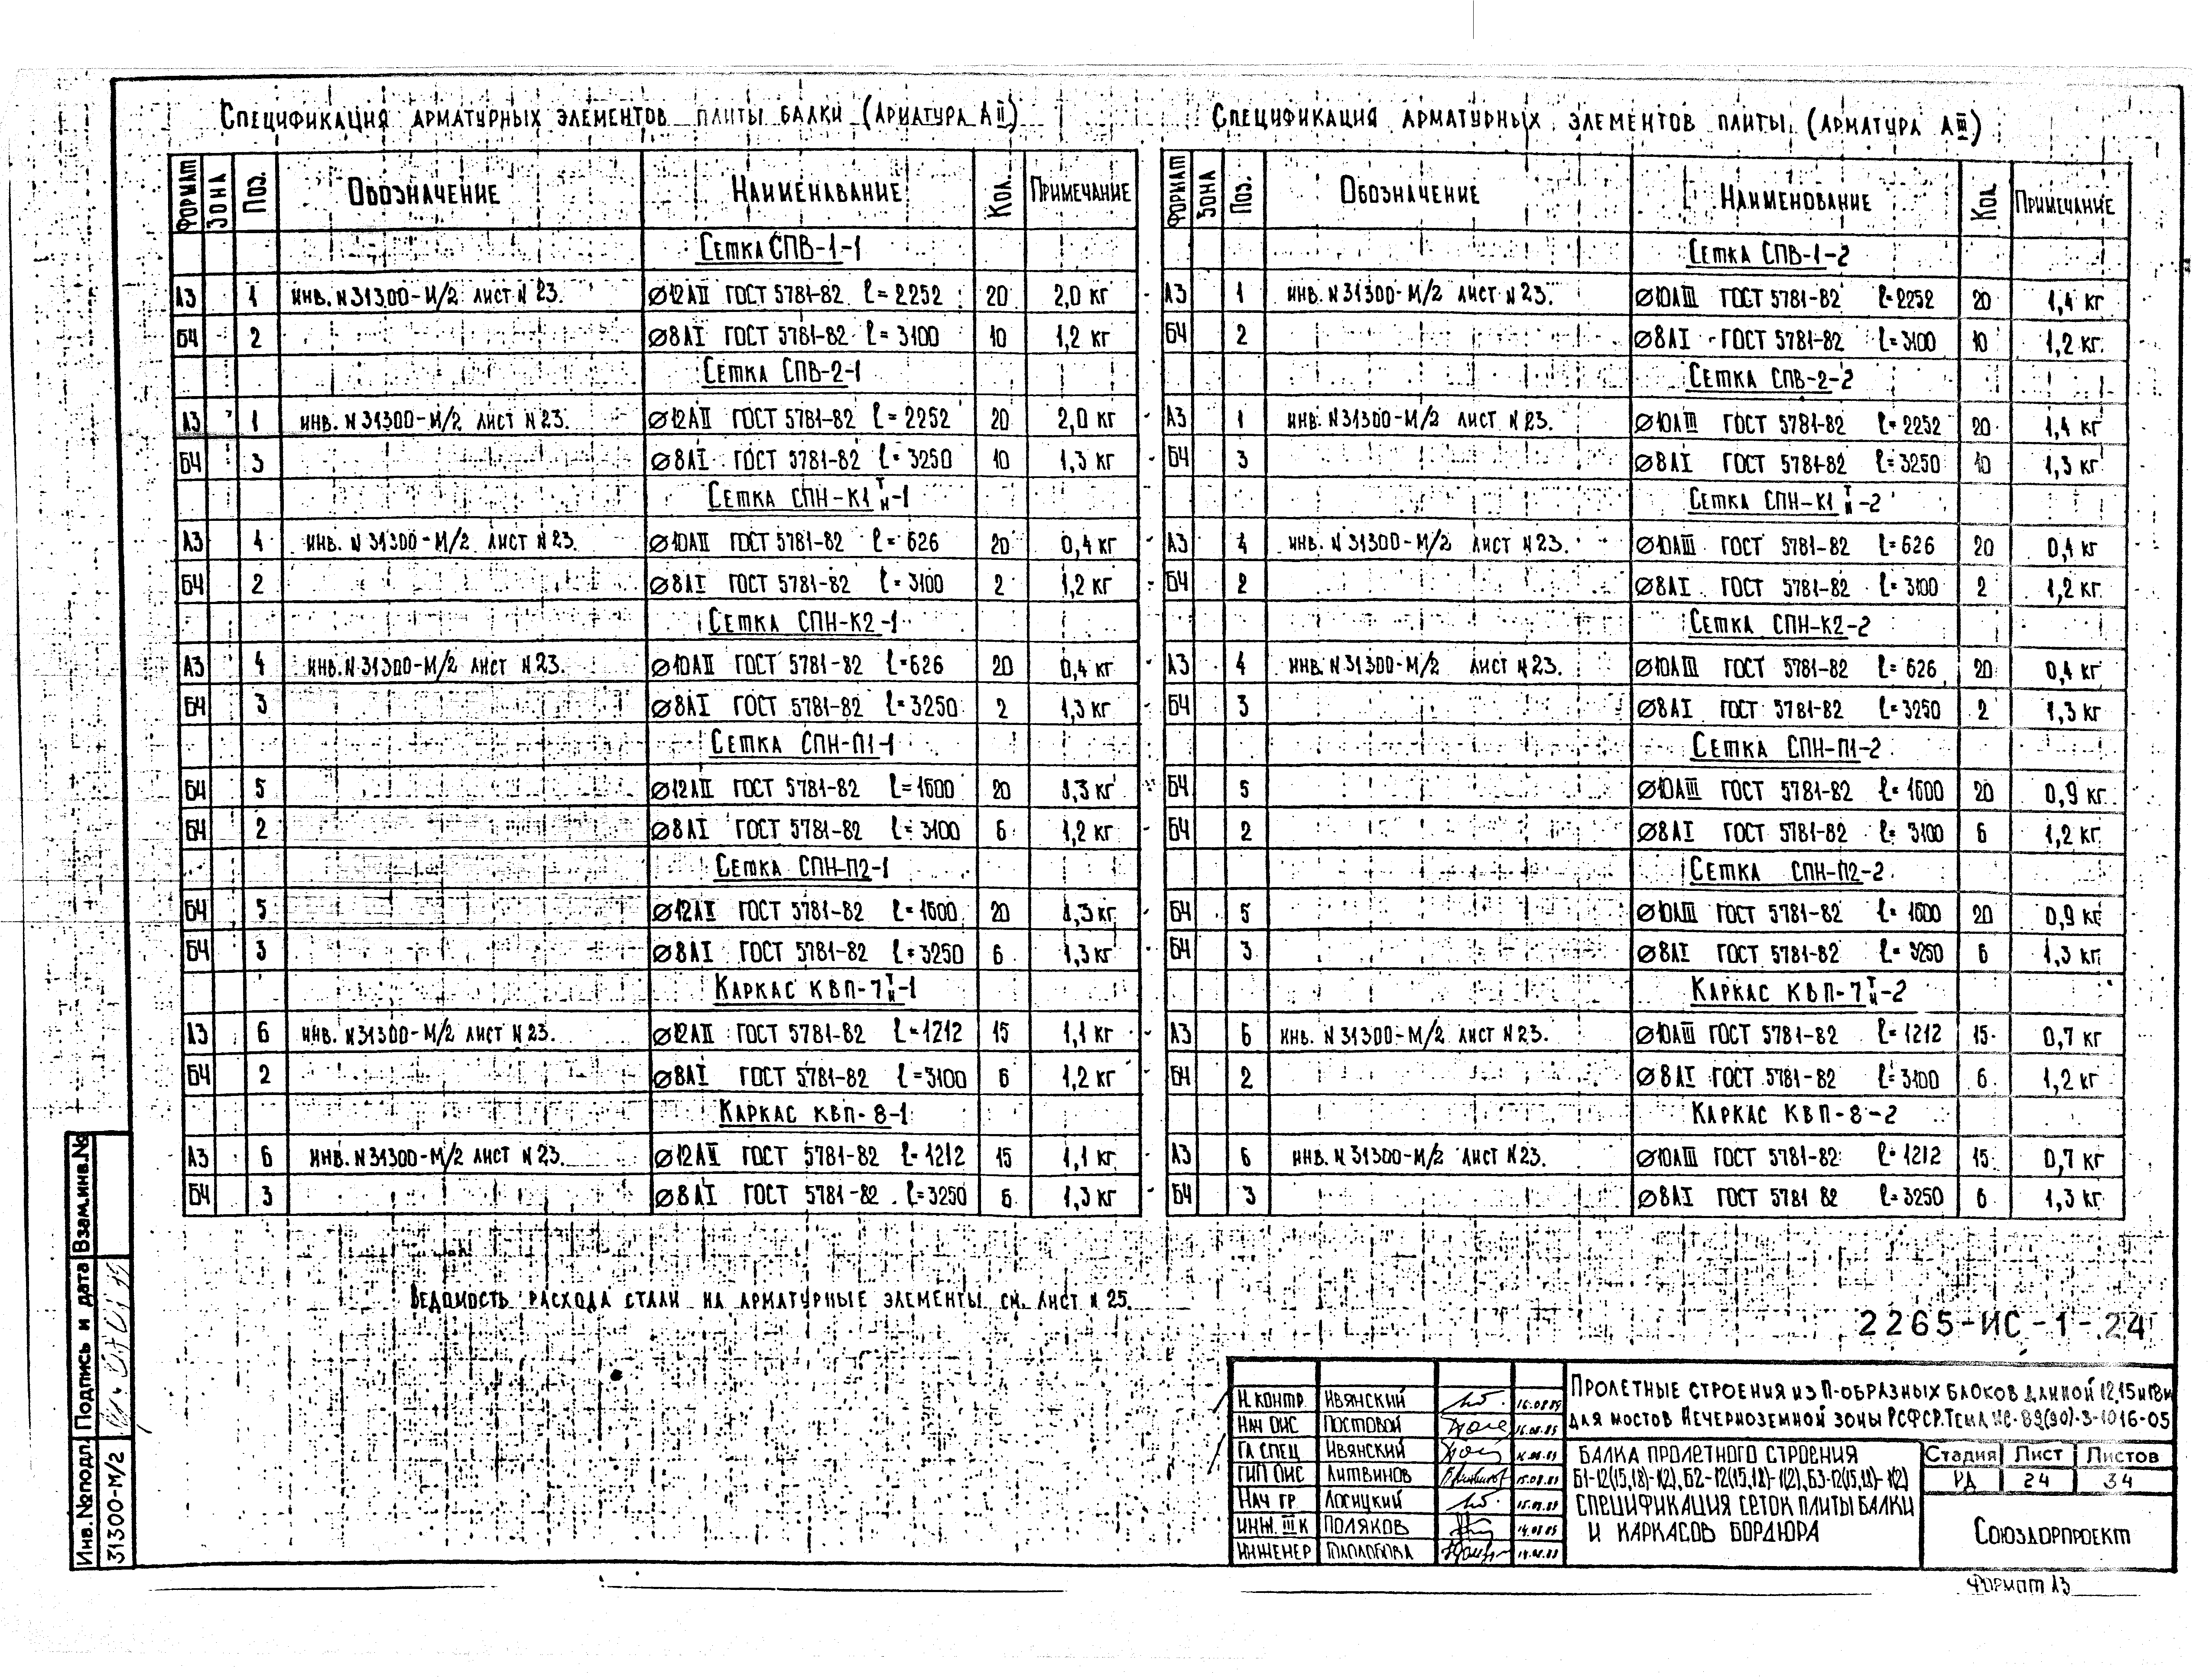 Спецификация арматурных элементов плиты балки (Арматура АII)
Формат Зона Поз. Обозначение Наименавание Кол. Примечание
Сетка СПВ-1-1
А3 1 инв. N 31300-М/2 лист N 23. Ø12АII ГОСТ 5781-82 ℓ=2252 20 2,0 кг
БЧ 2 Ø8АI ГОСТ 5781-82 ℓ=3100 10 1,2 кг
Сетка СПВ-2-1
А3 1 инв. N 31300-М/2 лист N 23. Ø12АII ГОСТ 5781-82 ℓ=2252 20 2,0 кг
БЧ 3 Ø8АI ГОСТ 5781-82 ℓ=3250 10 1,3 кг
Сетка СПН-К1 Т/Н-1
А3 4 инв. N 31300-М/2 лист N 23. Ø10АII ГОСТ 5781-82 ℓ=626 20 0,4 кг
БЧ 2 Ø8АI ГОСТ 5781-82 ℓ=3100 2 1,2 кг
Сетка СПН-К2-1
А3 4 инв. N 31300-М/2 лист N 23. Ø10АII ГОСТ 5781-82 ℓ=626 20 0,4 кг
БЧ 3 Ø8АI ГОСТ 5781-82 ℓ=3250 2 1,3 кг
Сетка СПН-П1-1
БЧ 5 Ø12АII ГОСТ 5781-82 ℓ=1500 20 1,3 кг
БЧ 2 Ø8АI ГОСТ 5781-82 ℓ=3100 6 1,2 кг
Сетка СПН-П2-1
БЧ 5 Ø12АII ГОСТ 5781-82 ℓ=1500 20 1,3 кг
БЧ 3 Ø8АI ГОСТ 5781-82 ℓ=3250 6 1,3 кг
Каркас КВП-7 Т/Н-1
А3 6 инв. N 31300-М/2 лист N 23. Ø12АII ГОСТ 5781-82 ℓ=1212 15 1,1 кг
БЧ 2 Ø8АI ГОСТ 5781-82 ℓ=3100 6 1,2 кг
Каркас КВП-8-1
А3 6 инв. N 31300-М/2 лист N 23. Ø12АII ГОСТ 5781-82 ℓ=1212 15 1,1 кг
БЧ 3 Ø8АI ГОСТ 5781-82 ℓ=3250 6 1,3 кг
Спецификация арматурных элементов плиты (арматура АIII)
Формат Зона Поз. Обозначение Наименование Кол Примечание
Сетка СПВ-1-2
А3 1 инв. N 31300-М/2 лист N 23. Ø10АIII ГОСТ 5781-82 ℓ=2252 20 1,4 кг
БЧ 2 Ø8АI ГОСТ 5781-82 ℓ=3100 10 1,2 кг
Сетка СПВ-2-2
А3 1 инв. N 31300-М/2 лист N 23. Ø10АIII ГОСТ 5781-82 ℓ=2252 20 1,4 кг
БЧ 3 Ø8АI ГОСТ 5781-82 ℓ=3250 10 1,3 кг
Сетка СПН-К1 Т/Н-2
А3 4 инв. N 31300-М/2 лист N 23. Ø10АIII ГОСТ 5781-82 ℓ=626 20 0,4 кг
БЧ 2 Ø8АI ГОСТ 5781-82 ℓ=3100 2 1,2 кг
Сетка СПН-К2-2
А3 4 инв. N 31300-М/2 лист N 23. Ø10АIII ГОСТ 5781-82 ℓ=626 20 0,4 кг
БЧ 3 Ø8АI ГОСТ 5781-82 ℓ=3250 2 1,3 кг
Сетка СПН-П1-2
БЧ 5 Ø10АIII ГОСТ 5781-82 ℓ=1500 20 0,9 кг
БЧ 2 Ø8АI ГОСТ 5781-82 ℓ=3100 6 1,2 кг
Сетка СПН-П2-2
БЧ 5 Ø10АIII ГОСТ 5781-82 ℓ=1500 20 0,9 кг
БЧ 3 Ø8АI ГОСТ 5781-82 ℓ=3250 6 1,3 кг
Каркас КВП-7 Т/Н-2
А3 6 инв. N 31300-М/2 лист N 23. Ø10АIII ГОСТ 5781-82 ℓ=1212 15 0,7 кг
БЧ 2 Ø8АI ГОСТ 5781-82 ℓ=3100 6 1,2 кг
Каркас КВП-8-2
А3 6 инв. N 31300-М/2 лист N 23. Ø10АIII ГОСТ 5781-82 ℓ=1212 15 0,7 кг
БЧ 3 Ø8АI ГОСТ 5781 82 ℓ=3250 6 1,3 кг
Ведомость расхода стали на арматурные элементы см. лист N 25.
2265-ИС-1-24
Н.контр Ивянский
Нач ОИС Постовой
Гл спец Ивянский
ГИП ОИС Литвинов
Нач гр Лосицкий
Инж. III к Поляков
Инженер
Пролетные строения из П-образных блоков длиной 12,15 и 18 м
для мостов Нечерноземной зоны РСФСР. Тема ИС-89(90)-3-1016-05
Балка пролетного строения
Б1-12(15,18)-1(2), Б2-12(15,18)-1(2), Б3-12(15,18)-1(2)
Спецификация сеток плиты балки
и каркасов бордюра
Стадия Лист Листов
РД 24 34
Союздорпроект
Формат А3
Инв.№подл. Подпись и дата Взам.инв.№
31300-М/2